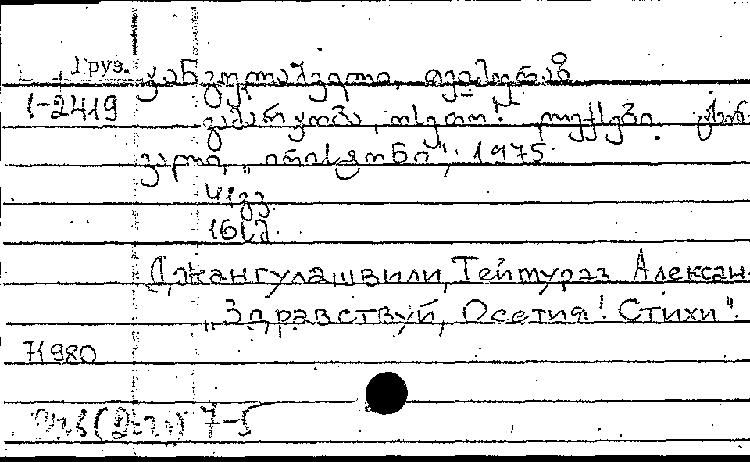 Груз.
ჯანგულაშვილი, თეიმურაზ
1-2419
გამარჯობა, ოსეთო! ლექსები. ცხინ-
ვალი, „ირისტონი", 1975.
41გვ.
16სმ.
Джангулашвили, Теймураз Алексан-
„Здравствуй, Осетия! Стихи".
71980
7-5